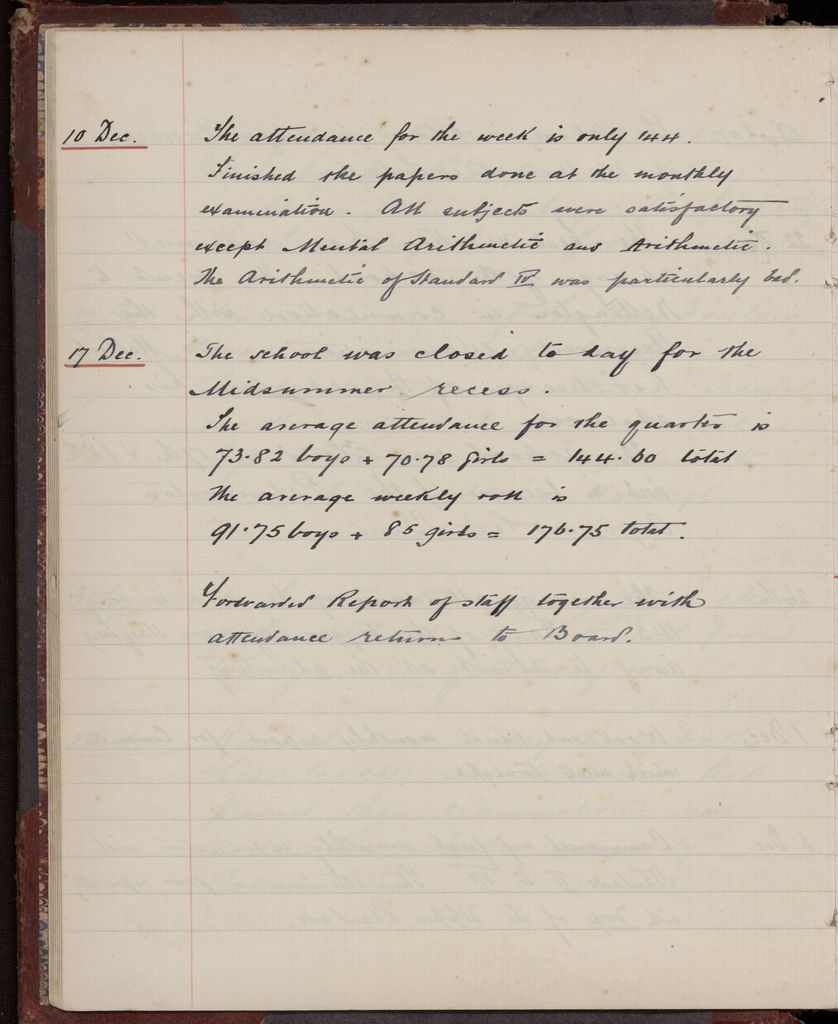 10 Dec. The attendance for the week is only 144.
Finished the papers done at the monthly
examination. All subjects were satisfactory
except Mental Arithmetic and Arithmetic.
The Arithmetic of Standard IV was particularly bad.
17 Dec. The school was closed to day for the
Midsummer recess.
The average attendance for the quarter is
73.82 boys + 70.78 girls = 144.60 total
The average weekly roll is
91.75 boys + 85 girls = 176.75 total.
Forwarded Report of staff together with
attendance returns to Board.